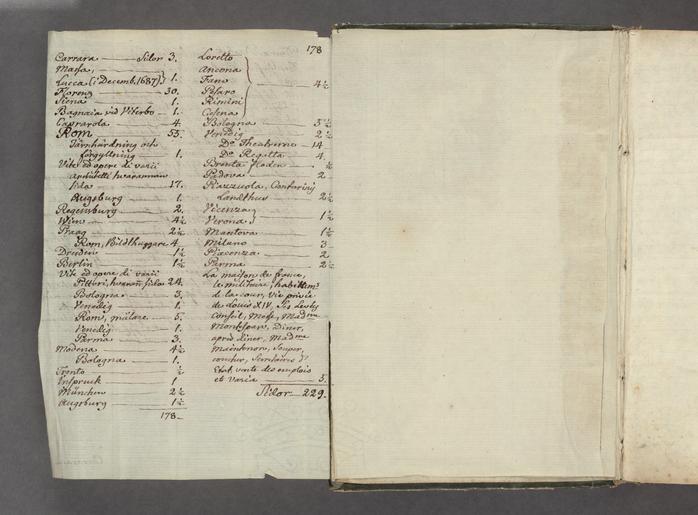 Carrara Sidor 3.
Massa,
Lucca (i Decemb. 1687) 1.
Florenz 30.
Siena 1.
Bagnaia vid Viterbo 1.
Caprarola 4.
Rom 55.
Järnhärdning och
förgyllning 1.
Vite ed opere di varii
Architetti hvaraf
17.
Augsburg 1.
Regensburg 2.
Wien 4½
Praag 2½
Rom, Bildthuggare 4
Dresden 1½
Berlin 1½
Vite ed opere di varii
Pittori, 24.
Bologna 3.
Venedig 1.
Rom, målare 5.
Venedig 1.
Parma 3.
Modena 4½
Bologna 1.
Trento ½
Inspruck 1
München 2½
Augsburg 1½
178.
178
Loretto
Ancona
Fano
Pesaro
Rimini
Cesena
4½
Bologna 5½
Venedig 2½
Do Theatrerne 14
Do Regatta 4
Brenta floden ½
Padova 2
Piazzuola, Contarinj
Landthus 2½
Vicenza
Verona 1½
Mantova 1½
Milano 3
Piacenza 2
Parma 2½
La maison de france,
la militaire, habillemt
de la cour, Vie privée
de Louis XIV, Ses Levées
Conseil, Messe, Madme
Montespan, Diner,
après diner, Madme
Maintenon, Souper,
coucher,
Etat vente des emplois
et Varia 5.
Sidor 229.